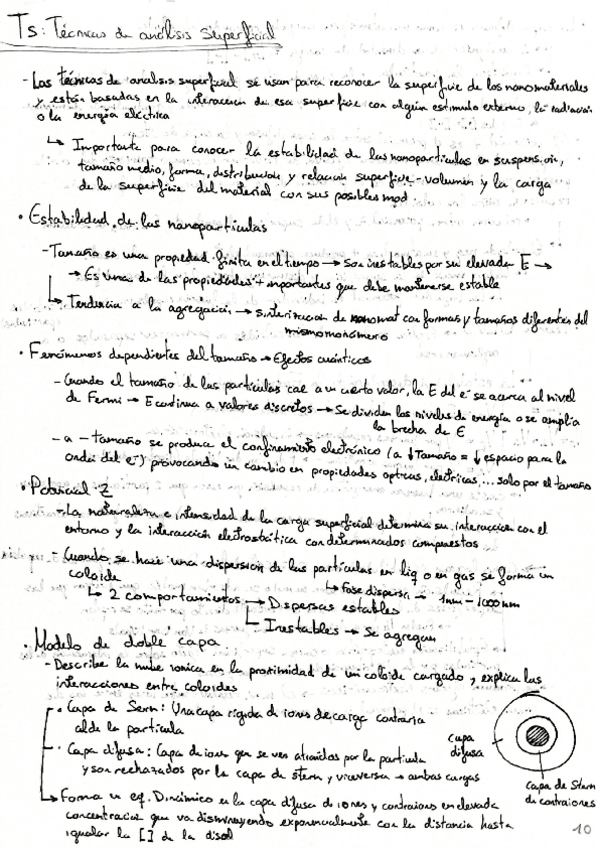 T5: Técnicas de análisis superficial
- Las técnicas de analisis superficial se usan para reconocer la superficie de los nanomateriales
y están basadas en la interacción de esa superficie con algún estimulo externo, la radiación
o la energía eléctrica
↳ Importante para conocer la estabilidad de las nanopartículas en suspension,
tamaño medio, forma, distribución y relación superficie-volumen y la carga
de la superficie del material con sus posibles mod.
• Estabilidad de las nanopartículas
- Tamaño es una propiedad finita en el tiempo → Son inestables por su elevada E →
→ Es una de las propiedades + importantes que debe mantenerse estable
↳ Tendencia a la agregación → sinterización de nanomat con formas y tamaños diferentes del
mismo monómero
• Fenómenos dependientes del tamaño → Efectos cuánticos
- Cuando el tamaño de las partículas cae a un cierto valor, la E del e⁻ se acerca al nivel
de Fermi → E continua a valores discretos → Se dividen los niveles de energía o se amplía
la brecha de E
- a - tamaño se produce el confinamiento electrónico (a ↓ Tamaño = ↓ espacio para la
onda del e⁻) provocando un cambio en propiedades opticas, electricas,... solo por el tamaño
• Potencial Z
- La naturaleza e intensidad de la carga superficial determina su interacción con el
entorno y la interacción electrostática con determinados compuestos
- Cuando se hace una dispersión de las partículas en liq o en gas se forma un
coloide
↳ Fase dispersa → 1nm - 1000nm
↳ 2 comportamientos → Dispersas estables
↳ Inestables → Se agregan
• Modelo de doble capa
- Describe la nube ionica en la proximidad de un coloide cargado y explica las
interacciones entre coloides
• Capa de Stern: Una capa rígida de iones de carga contraria
a la de la partícula
• Capa difusa: Capa de iones que se ven atraídos por la partícula
y son rechazados por la capa de stern y viceversa → ambas cargas
↳ Forma un eq. Dinámico en la capa difusa de iones y contraiones en elevada
concentración que va disminuyendo exponencialmente con la distancia hasta
igualar la [] de la disol
capa
difusa
capa de Stern
de contraiones
10